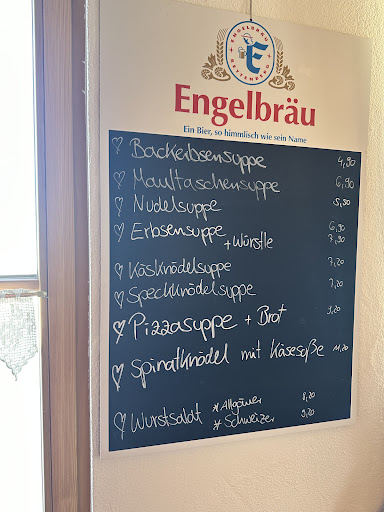 ENGELBRÄU
RETTENBERG
Engelbräu
Ein Bier, so himmlisch wie sein Name
Backerbsensuppe 4,90
Maultaschensuppe 6,90
Nudelsuppe 5,50
Erbsensuppe 6,90
+ Würstle 7,90
Käsknödelsuppe 7,20
Speckknödelsuppe 7,20
Pizzasuppe + Brot 9,20
Spinatknödel mit Käsesoße 11,20
Wurstsalat * Allgäuer 8,20
* Schweizer 9,20